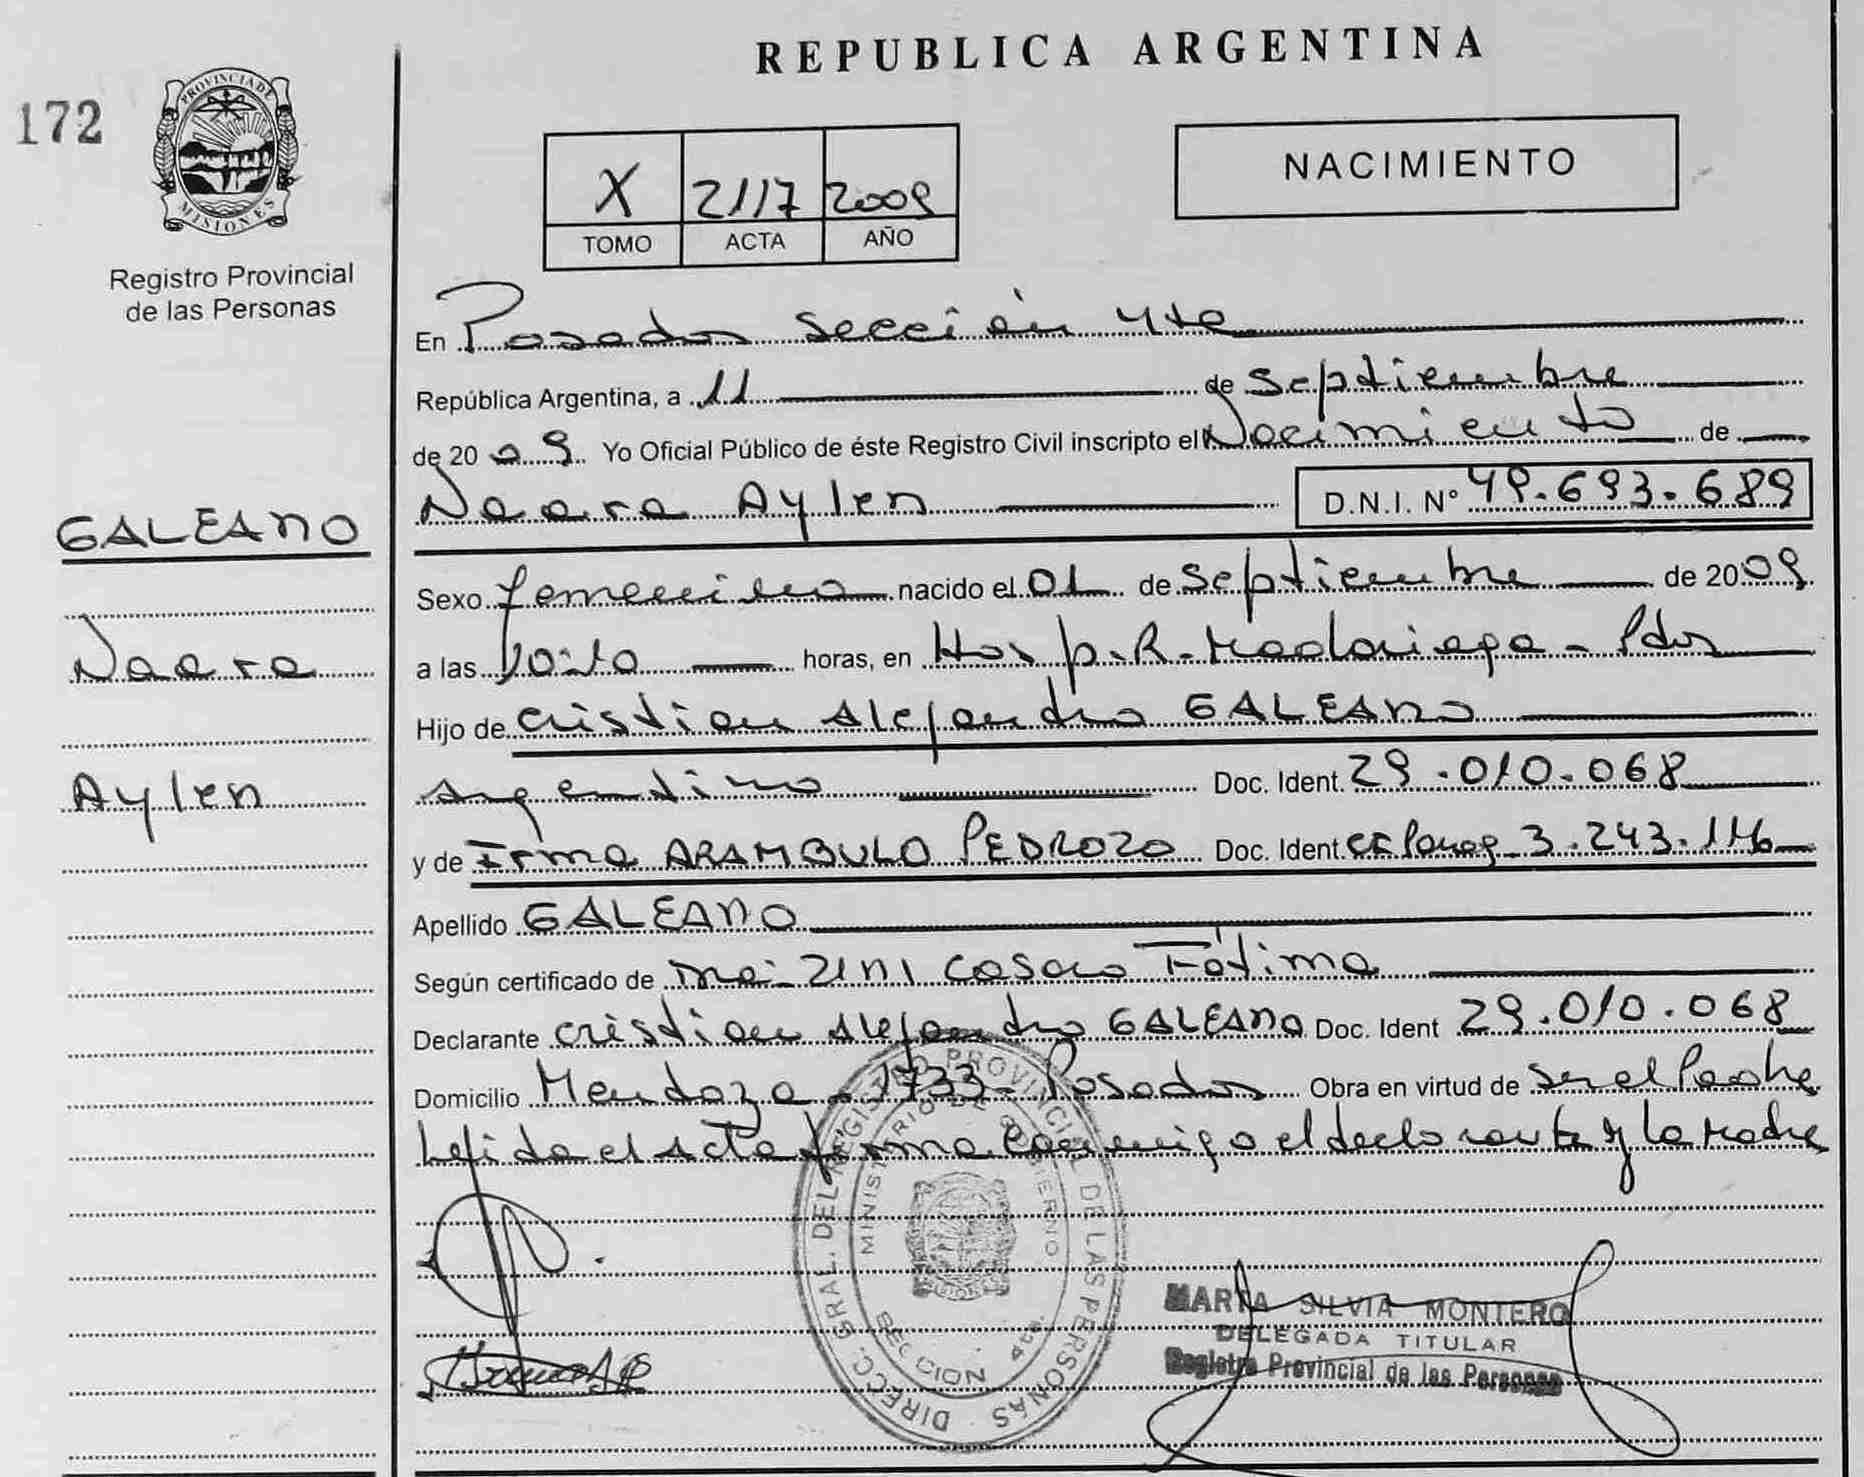 REPUBLICA ARGENTINA
172
PROVINCIA DE
MISIONES
Registro Provincial
de las Personas
X 2117 2009
TOMO ACTA AÑO
NACIMIENTO
En Posadas Sección 4ta
República Argentina, a 11 de Septiembre
de 2009 Yo Oficial Público de éste Registro Civil inscripto el Nacimiento de
Naara Aylen D.N.I. Nº 49.693.689
GALEANO
Naara
Aylen
Sexo femenino nacido el 01 de Septiembre de 2009
a las horas, en Hosp. R. Madariaga - Pdas
Hijo de Cristian Alejandro GALEANO
Argentino Doc. Ident. 29.010.068
y de Irma ARAMBULO PEDROZO Doc. Ident. CI Parag. 3.243.116
Apellido GALEANO
Según certificado de Fátima
Declarante Cristian Alejandro GALEANO Doc. Ident 29.010.068
Domicilio Mendoza 1733 - Posadas Obra en virtud de Ser el Padre
Leída el Acta firma conmigo el declarante y la Madre
DIRECC. GRAL. DEL REGISTRO PROVINCIAL DE LAS PERSONAS
MINISTERIO DE GOBIERNO
SECCION 4ta.
MARTA SILVIA MONTERO
DELEGADA TITULAR
Registro Provincial de las Personas